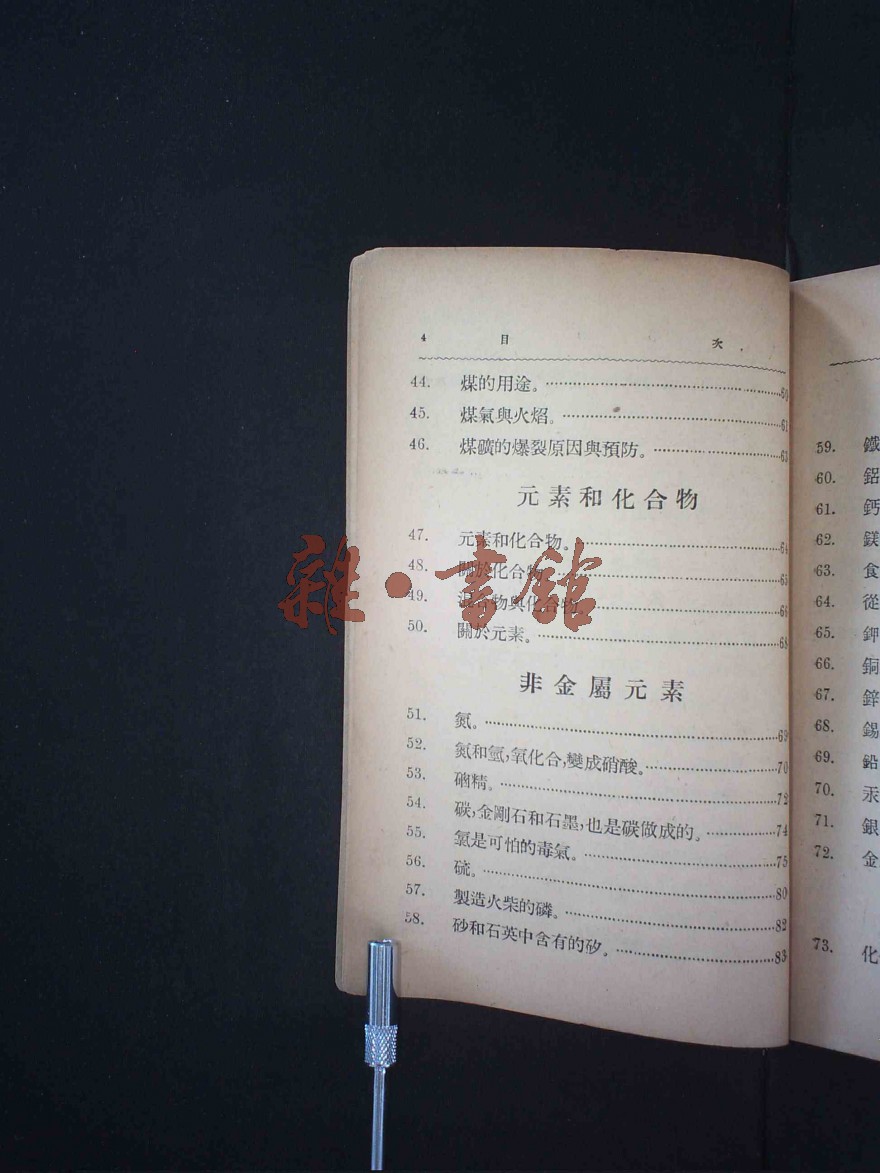 4 目 次
44. 煤的用途。 60
45. 煤氣與火焰。 61
46. 煤礦的爆裂原因與預防。 63
元素和化合物
47. 元素和化合物。 64
48. 關於化合物。 65
49. 混合物與化合物。 66
50. 關於元素。 68
非金屬元素
51. 氮。 69
52. 氮和氫,氧化合,變成硝酸。 70
53. 硇精。 72
54. 碳,金剛石和石墨,也是碳做成的。 74
55. 氯是可怕的毒氣。 75
56. 硫。 80
57. 製造火柴的磷。 82
58. 砂和石英中含有的矽。 83
59. 鐵
60. 鋁
61. 鈣
62. 鎂
63. 食
64. 從
65. 鉀
66. 銅
67. 鋅
68. 錫
69. 鉛
70. 汞
71. 銀
72. 金
73. 化
雜·書館